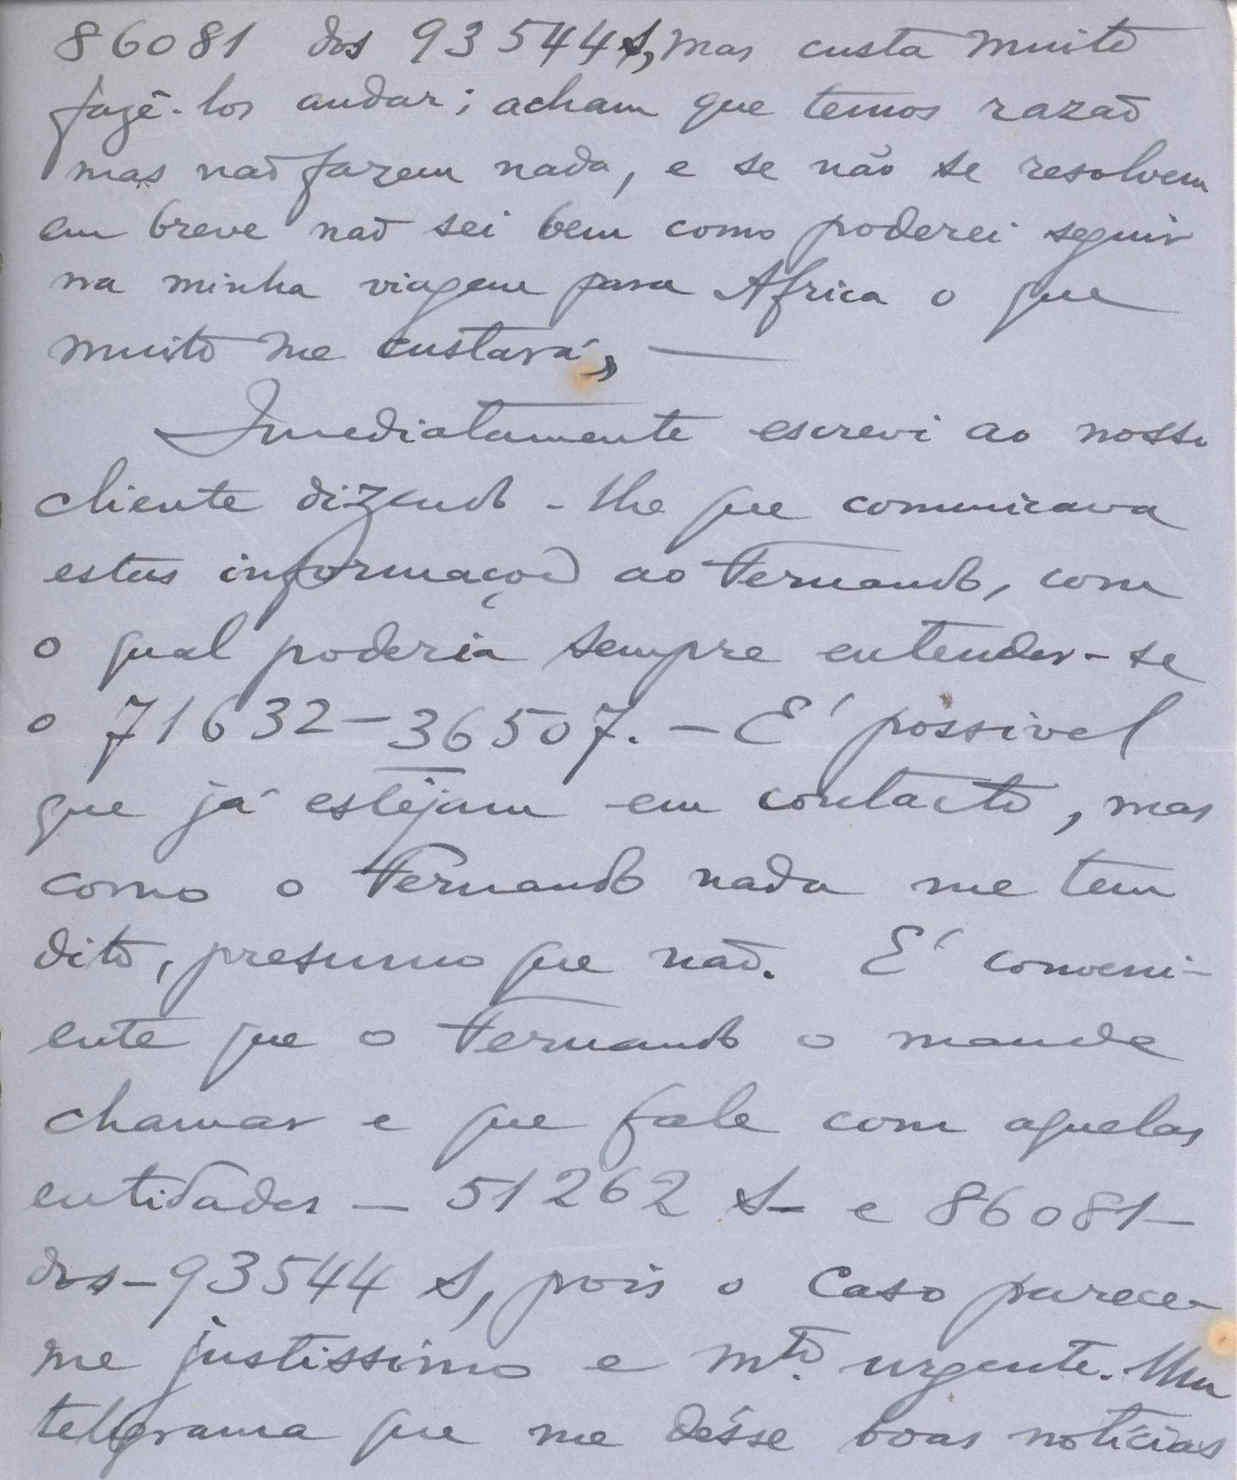 86081 dos 93544 S, mas custa muito
fazê-los andar; acham que temos razaõ
mas naõ fazem nada, e se não se resolvem
em breve naõ sei bem como poderei seguir
na minha viagem para Africa o que
muito me custará, —
Imediatamente escrevi ao nosso
cliente dizendo-lhe que comunicava
estas informações ao Fernando, com
o qual poderia sempre entender-se
o 71632-36507. - E' possivel
que já estejam em contacto, mas
como o Fernando nada me tem
dito, presumo que naõ. E' conveni-
ente que o Fernando o mande
chamar e que fale com aquelas
entidades - 51262 S- e 86081-
dos-93544 S, pois o caso parece-
me justissimo e mto. urgente. Um
telegrama que me désse boas notícias